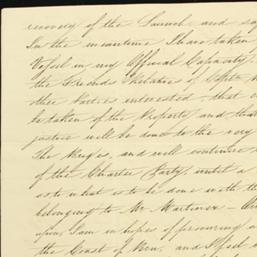 recovery of the Launch and
In the meantime I have taken
Vessel in my Official Capacity,
the Friends Relatives of Capt
other Parties interested, that
be taken of the Property and that
justice will be done to the very
The Krugs, and will continue
of the Charter Party, until a
as to what is to be done with the
belonging to Mr Martinez
upon, I am in hopes of procuring
the Coast of Peru, and